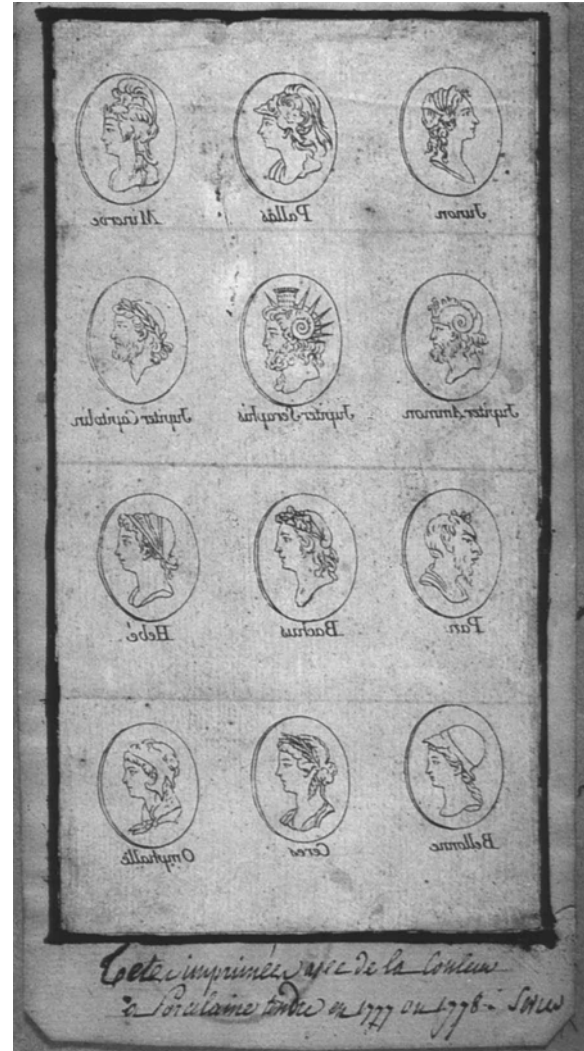 Minerve Pallas Junon
Jupiter Capitolin Jupiter Seraphis Jupiter Ammon
Hebé Bachus Pan
Omphalle Ceres Bellonne
Tete imprimées avec de la Couleur
Porcelaine tendre en 1777 ou 1778 a Sevres